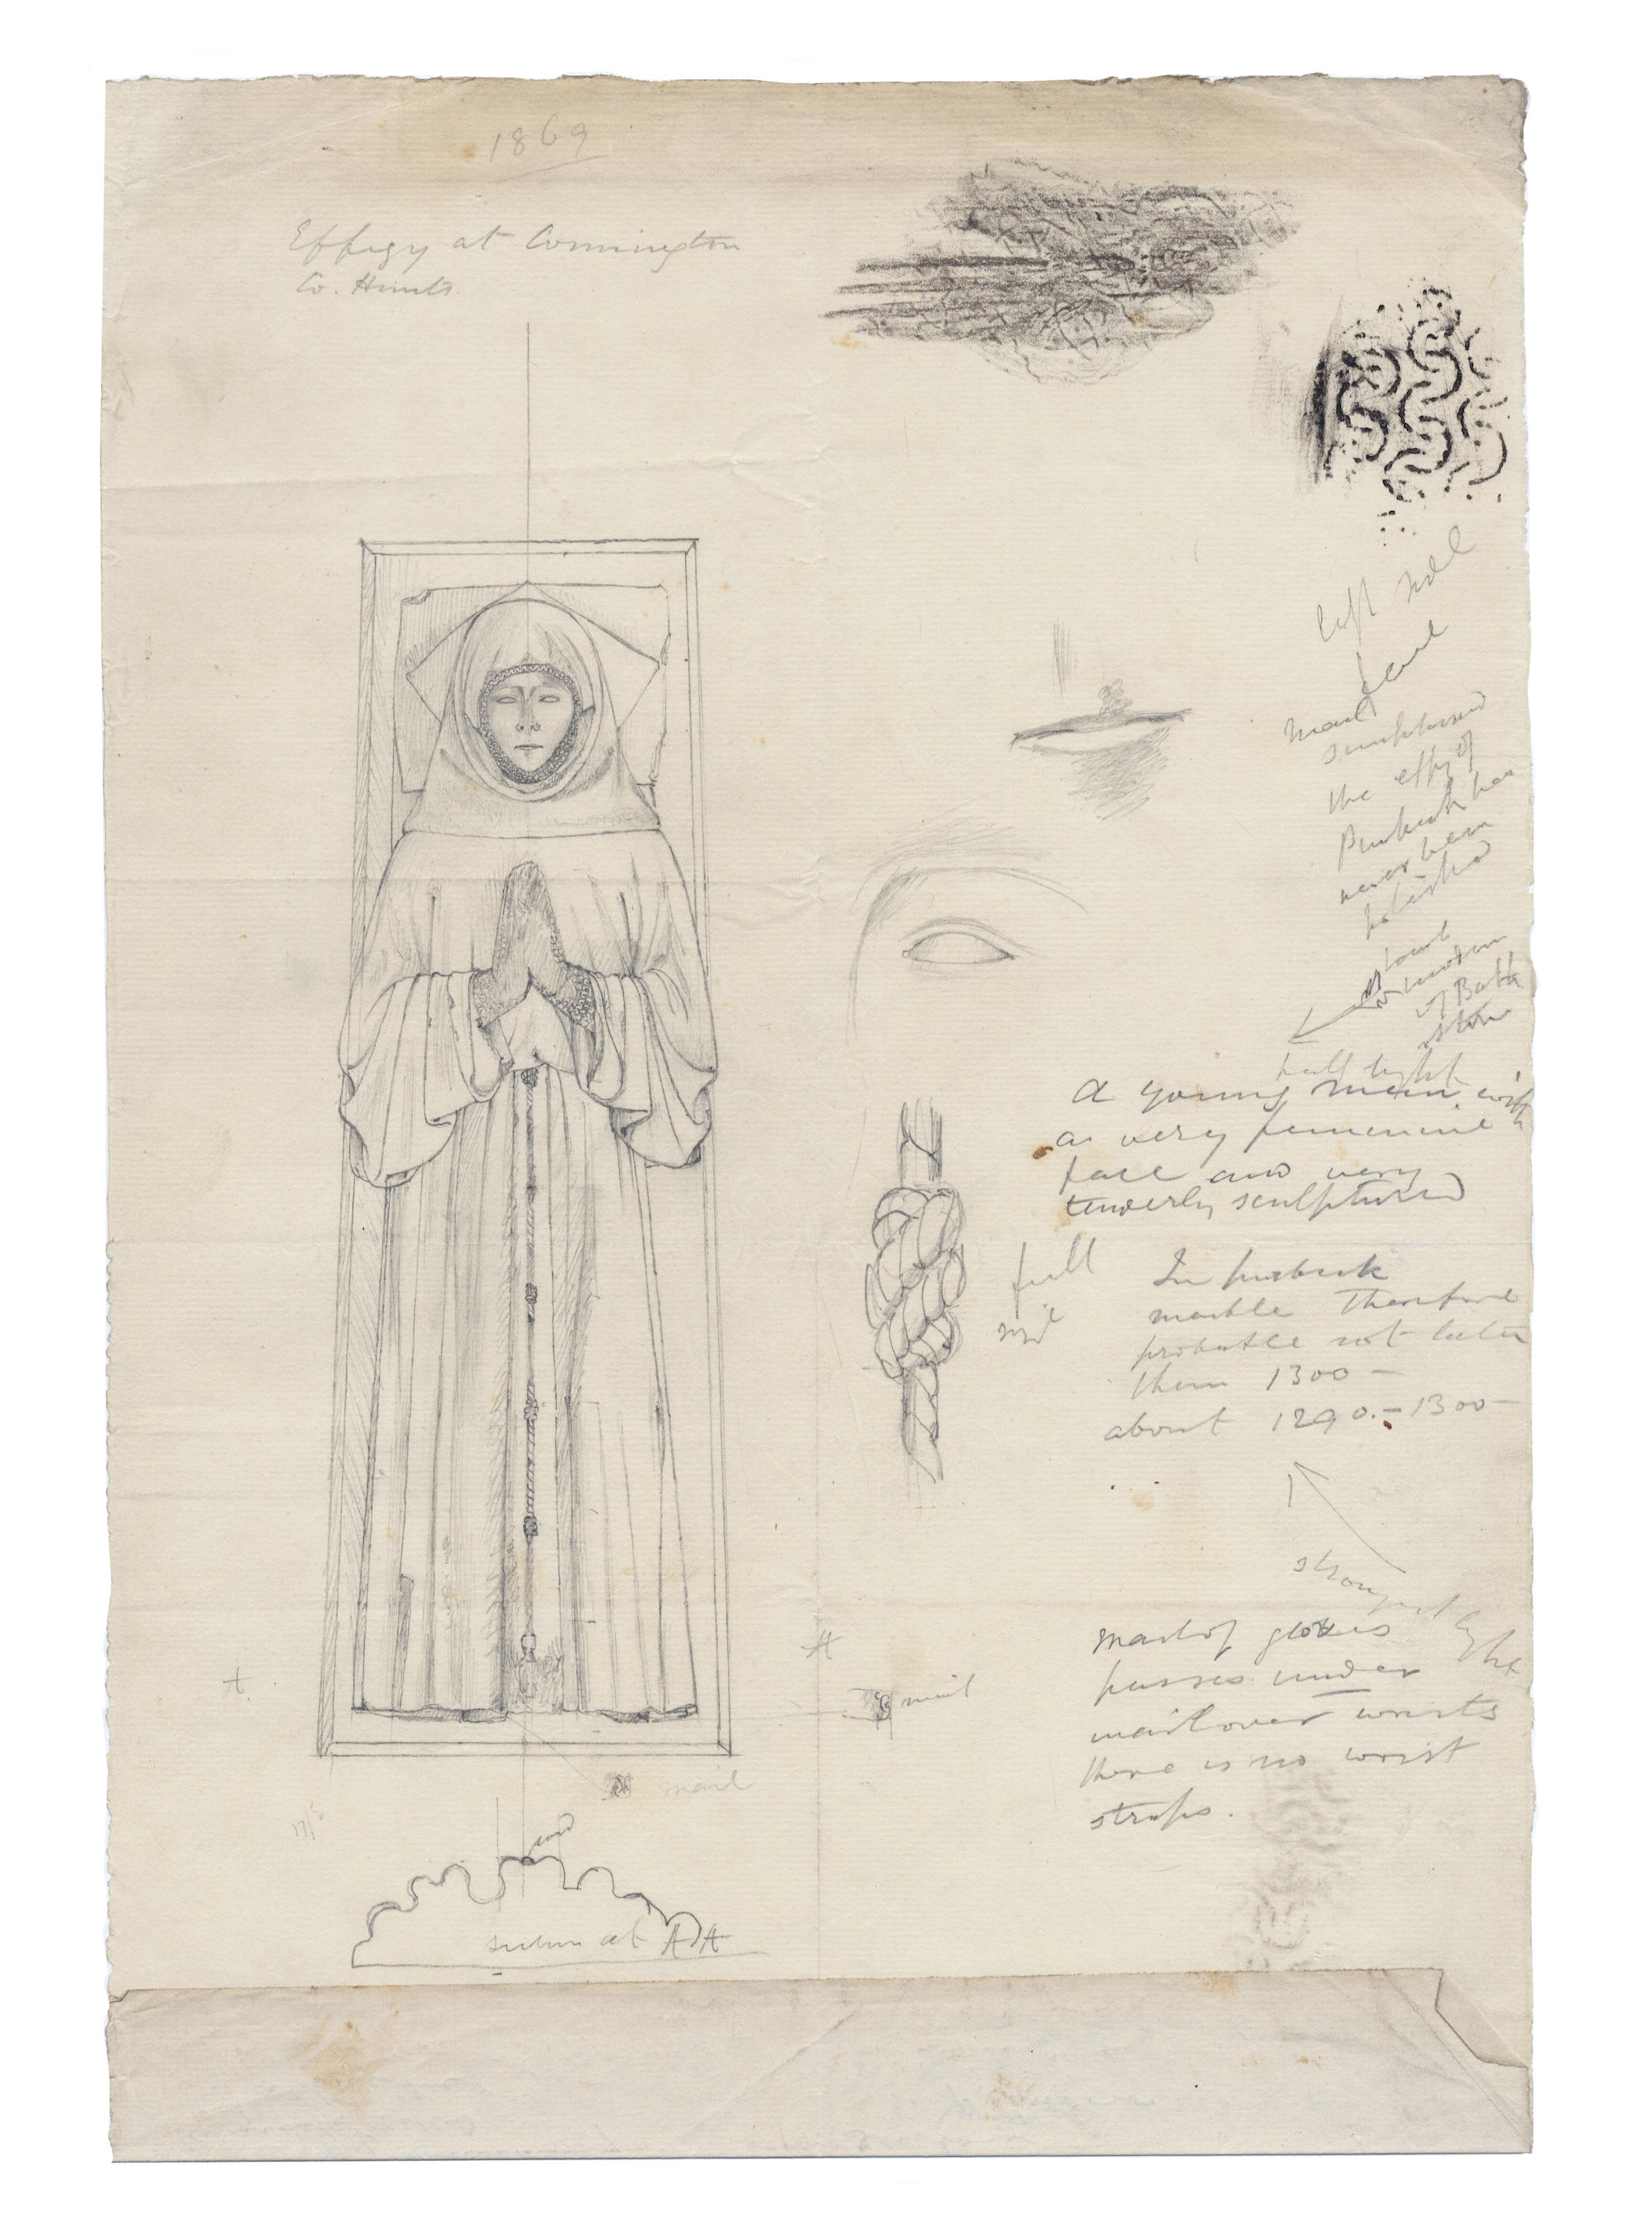 1869
Effigy at Connington
Co. Hunts.
left
mail
sculptured
the effy of
Purbeck has
never been
polished
modern
of Bath
stone
half light
A young man with
a very feminine
face and very
tenderly sculptured
full
size
In purbeck
marble therefore
probable not later
then 1300 -
about 1290.-1300-
strongest light
Mail of gloves
passes under
mail over wrists
there is no wrist
straps.
A
A
mail
mail
cord
section at A A